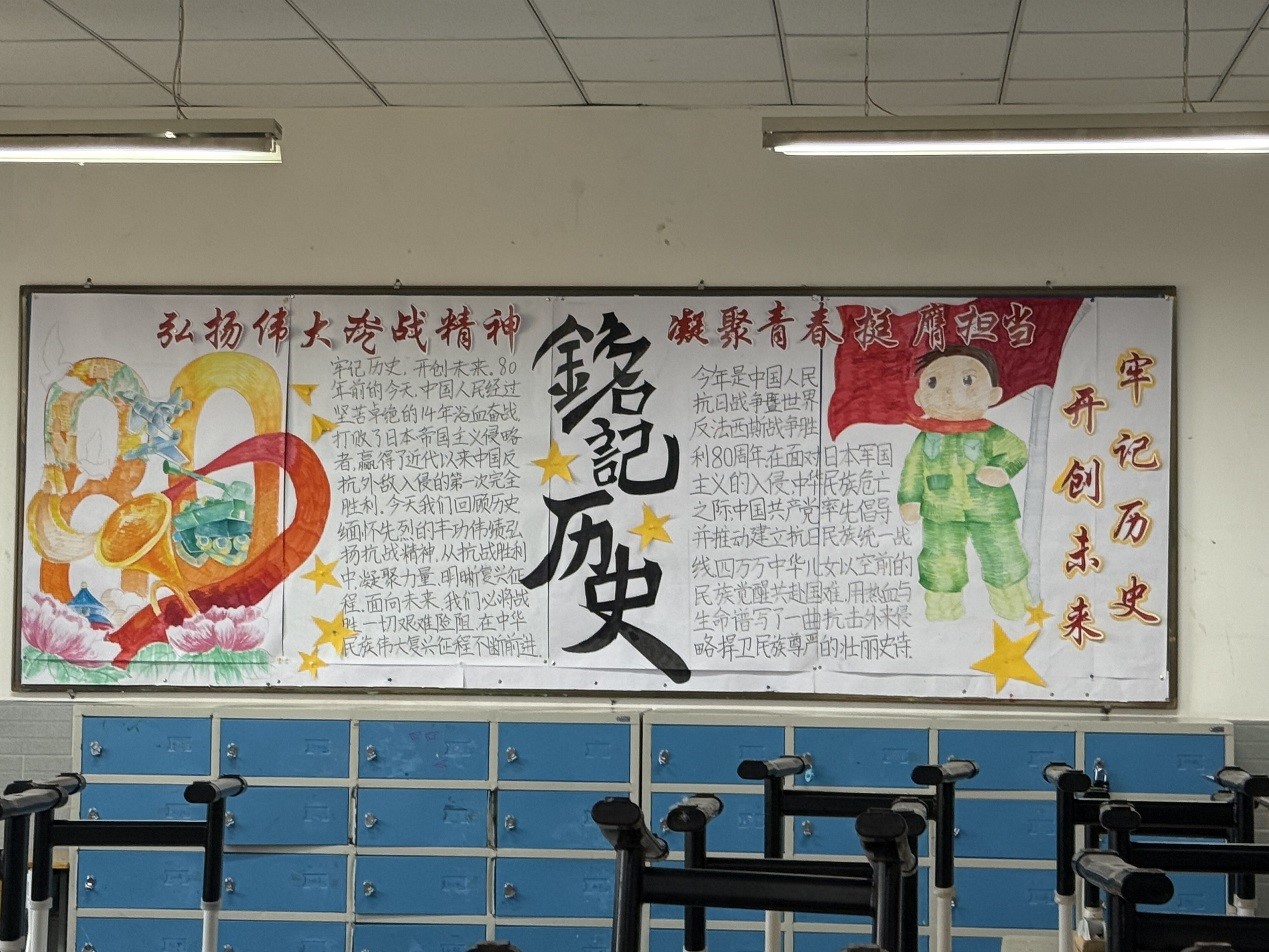 弘扬伟大抗战精神
80
牢记历史,开创未来。80
年前的今天,中国人民经过
坚苦卓绝的14年浴血奋战
打败了日本帝国主义侵略
者,赢得了近代以来中国反
抗外敌入侵的第一次完全
胜利。今天我们回顾历史
缅怀先烈的丰功伟绩弘
扬抗战精神,从抗战胜利
中凝聚力量,明晰复兴征
程,面向未来,我们必将战
胜一切艰难险阻,在中华
民族伟大复兴征程不断前进.
銘記历史
凝聚青春挺膺担当
今年是中国人民
抗日战争暨世界
反法西斯战争胜
利80周年.在面对日本军国
主义的入侵,中华民族危亡
之际中国共产党率先倡导
并推动建立抗日民族统一战
线四万万中华儿女以空前的
民族觉醒共赴国难,用热血与
生命谱写了一曲抗击外来侵
略捍卫民族尊严的壮丽史诗
牢记历史
开创未来